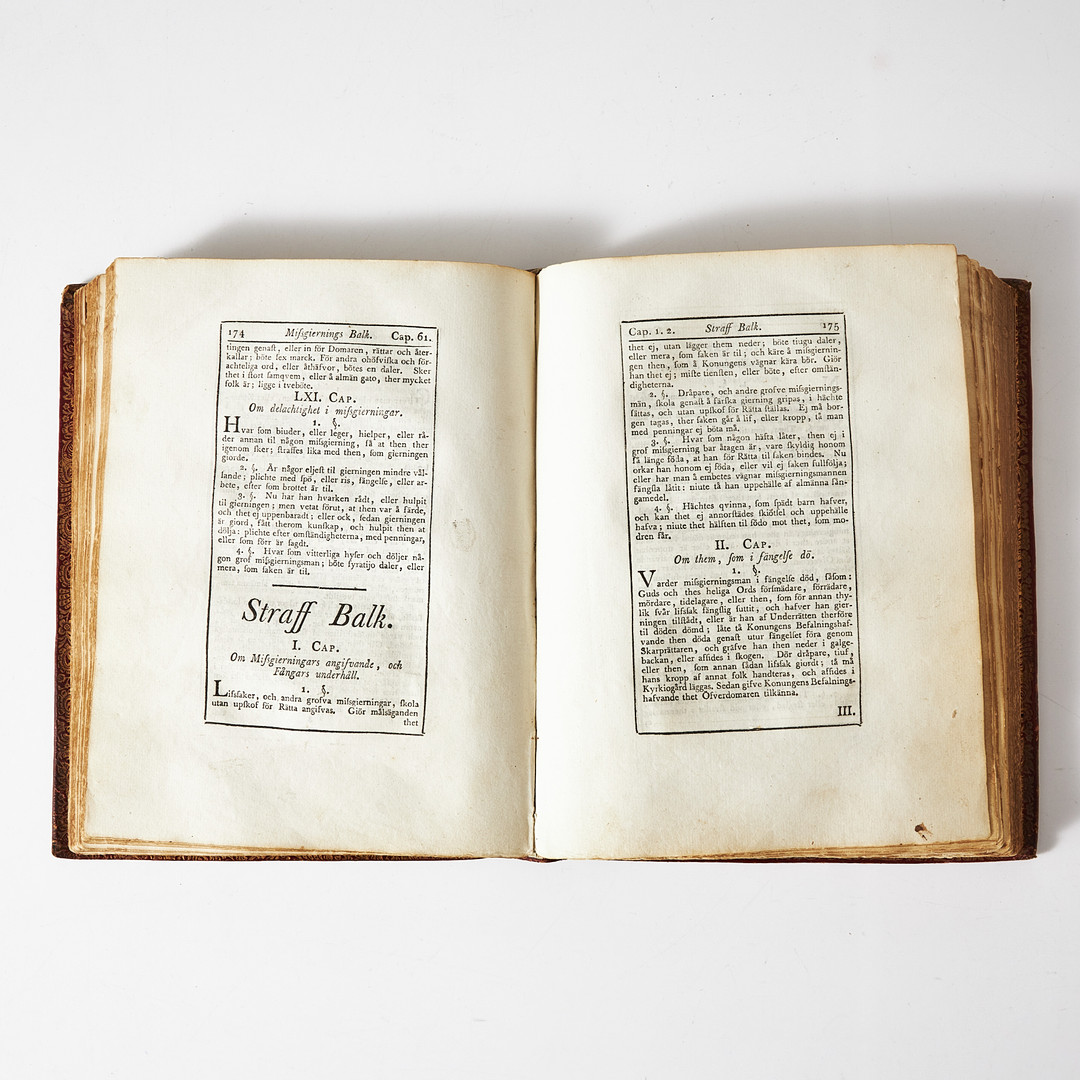 174 Miſsgiernings Balk. Cap. 61.
tingen genaſt, eller in för Domaren, rättar och åter-
kallar; böte ſex marck. För andra ohöfviſka och för-
achteliga ord, eller åthäfvor, bötes en daler. Sker
thet i ſtort ſamqvem, eller å almän gato, ther mycket
folk är; ligge i tveböte.
LXI. CAP.
Om delachtighet i miſsgierningar.
1. §.
Hvar som biuder, eller leger, hielper, eller rå-
der annan til någon miſsgierning, ſå at then ther
igenom ſker; ſtraffes lika med then, som gierningen
giorde.
2. §. Är någor eljeſt til gierningen mindre vål-
lande; plichte med ſpö, eller ris, fängelſe, eller ar-
bete, efter som brottet är til.
3. §. Nu har han hvarken rådt, eller hulpit
til gierningen; men vetat förut, at then var å färde,
och thet ej uppenbaradt; eller ock, ſedan gierningen
är giord, fått therom kunſkap, och hulpit then at
dölja: plichte efter omſtändigheterna, med penningar,
eller ſom förr är ſagdt.
4. §. Hvar ſom vitterliga hyſer och döljer nå-
gon grof miſsgierningsman; böte fyratijo daler, eller
mera, ſom ſaken är til.
Straff Balk.
I. CAP.
Om Miſsgierningars angifvande, och
Fångars underhåll.
1. §.
Lifsſaker, och andra grofva miſsgierningar, ſkola
utan upſkof för Rätta angifvas. Giör målsäganden
thet
Cap. 1. 2. Straff Balk. 175
thet ej, utan lägger them neder; böte tiugu daler,
eller mera, ſom ſaken är til; och käre å miſsgiernin-
gen then, ſom å Konungens vägnar kära bör. Giör
han thet ej; miſte tienſten, eller böte, efter omſtän-
digheterna.
2. §. Dråpare, och andre grofve miſsgiernings-
män, ſkola genaſt å färſka gierning gripas, i hächte
ſättas, och utan upſkof för Rätta ſtällas. Ej må bor-
gen tagas, ther ſaken går å lif, eller kropp, tå man
med penningar ej böta må.
3. §. Hvar ſom någon häfta låter, then ej i
grof miſsgierning bar åtagen är, vare ſkyldig honom
ſå länge föda, at han för Rätta til ſaken bindes. Nu
orkar han honom ej föda, eller vil ej ſaken fullfölja;
eller har man å embetes vägnar miſsgierningsmannen
fängſla låtit: niute tå han uppehälle af almänna fån-
gamedel.
4. §. Hächtes qvinna, ſom ſpädt barn hafver,
och kan thet ej annorſtädes ſkiötſel och uppehälle
hafva; niute thet hälften til födo mot thet, ſom mo-
dren får.
II. CAP.
Om them, ſom i fängelſe dö.
1. §.
Varder miſsgierningsman i fängelſe död, ſåſom:
Guds och thes heliga Ords förſmädare, förrädare,
mördare, tidelagare, eller then, ſom för annan thy-
lik ſvår lifsſak fängſlig ſuttit, och hafver han gier-
ningen tilſtådt, eller är han af Underrätten therföre
til döden dömd; låte tå Konungens Befalningshaf-
vande then döda genaſt utur fängelſet föra genom
Skarprättaren, och gräfve han then neder i galge-
backan, eller affides i ſkogen. Dör dråpare, tiuf,
eller then, ſom annan ſådan lifsſak giordt; tå må
hans kropp af annat folk handteras, och affides i
Kyrkiogård läggas. Sedan gifve Konungens Befalnings-
hafvande thet Öfverdomaren tilkänna.
III.